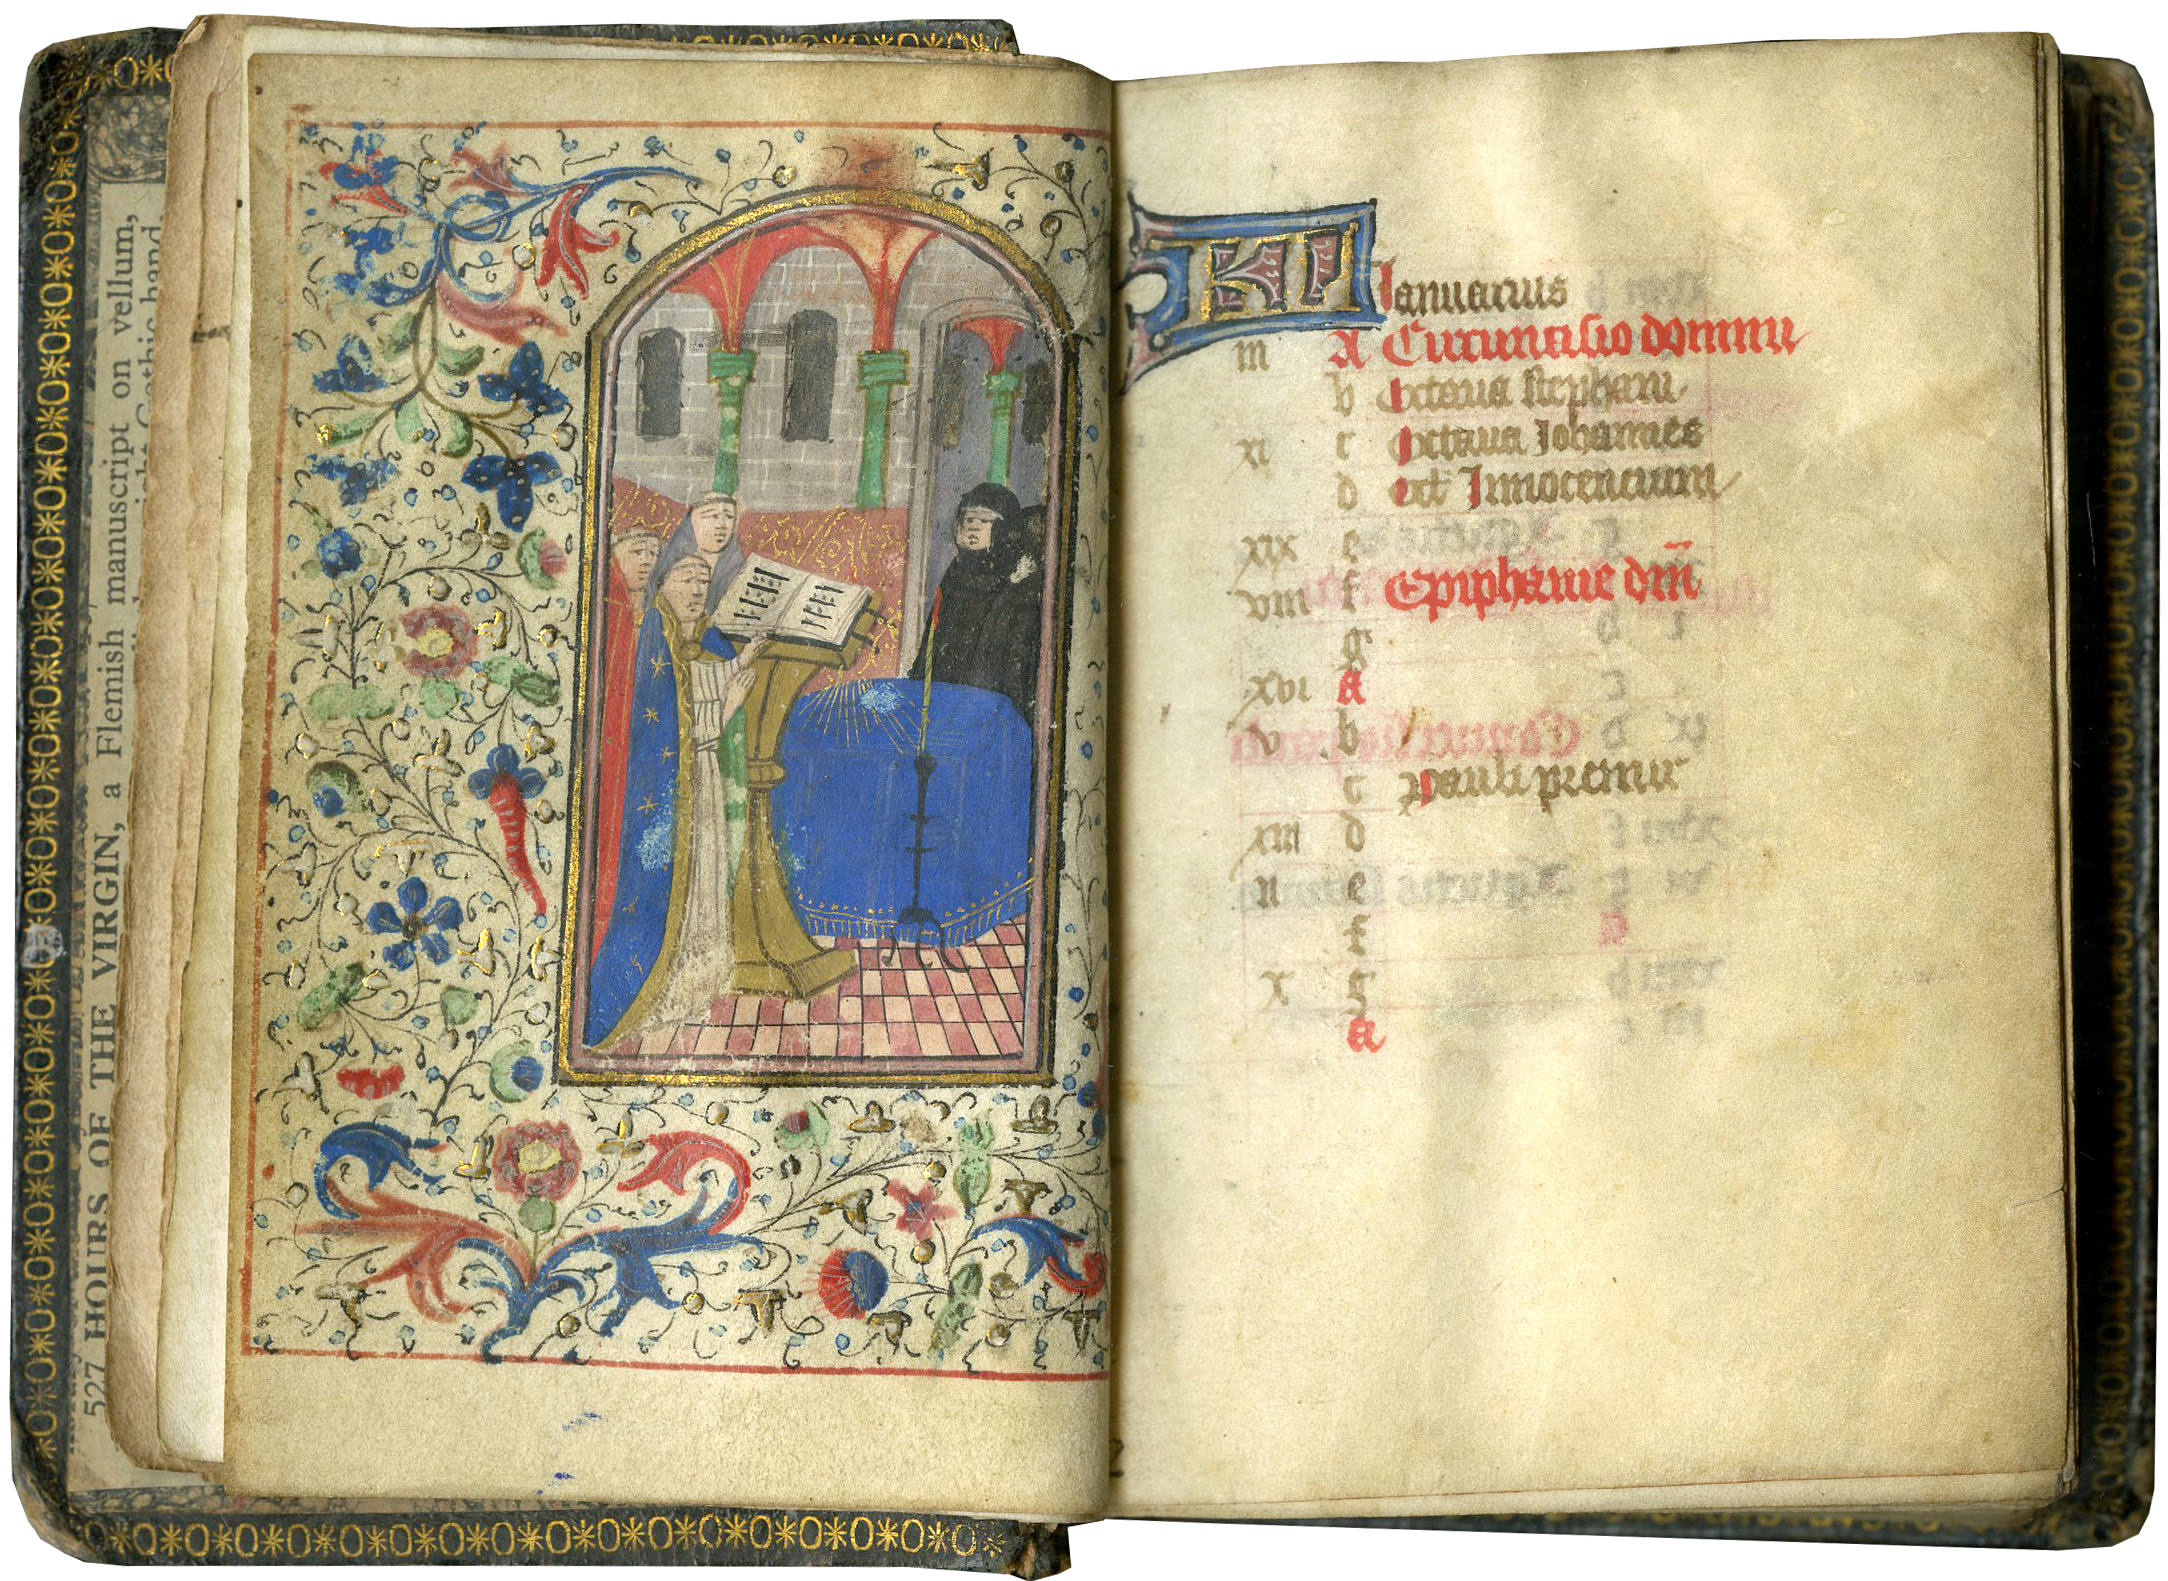 527 HOURS OF THE VIRGIN, a Flemish manuscript on vellum,
Gothic hand,
KL Ianuarius
iii A Circuncisio domini
b Octaua stephani
xi c Octaua Iohannes
d oct Innocencium
xix e
viii f Epiphanie dni
g
xvi A
v b
c Pauli premir
xiii d
ii e
f
x g
A